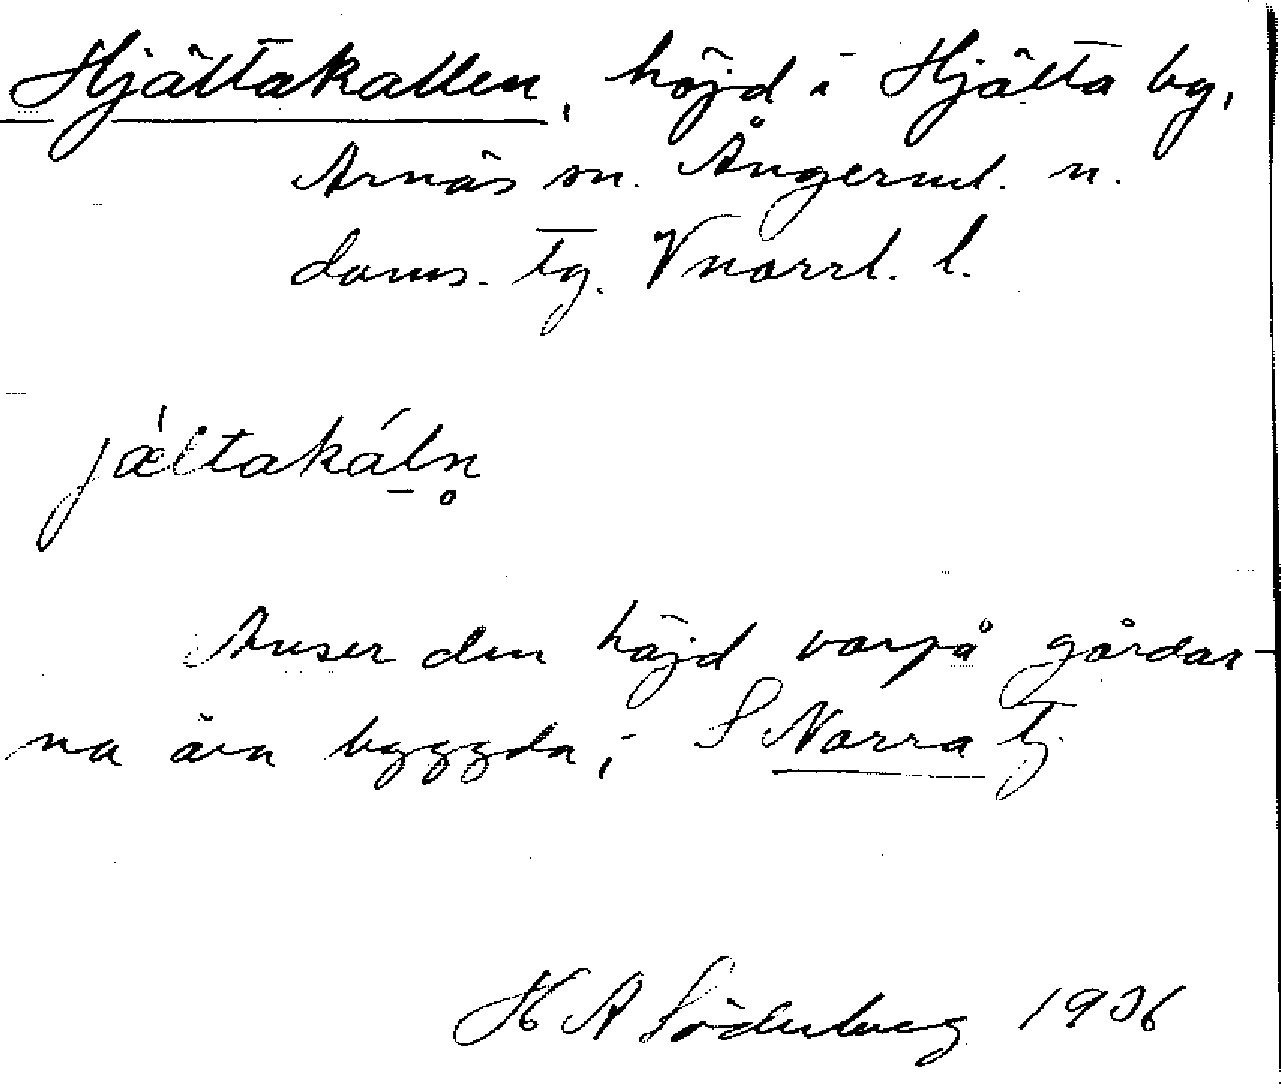 Hjältakallen, höjd i Hjälta by,
Arnäs sn. Ångerml. n.
doms. tg. Vnorrl. l.
jæ̀ltakáln̥
Avser den höjd varpå gårdar-
na äro byggda, i S Norra
H A Söderberg 1936